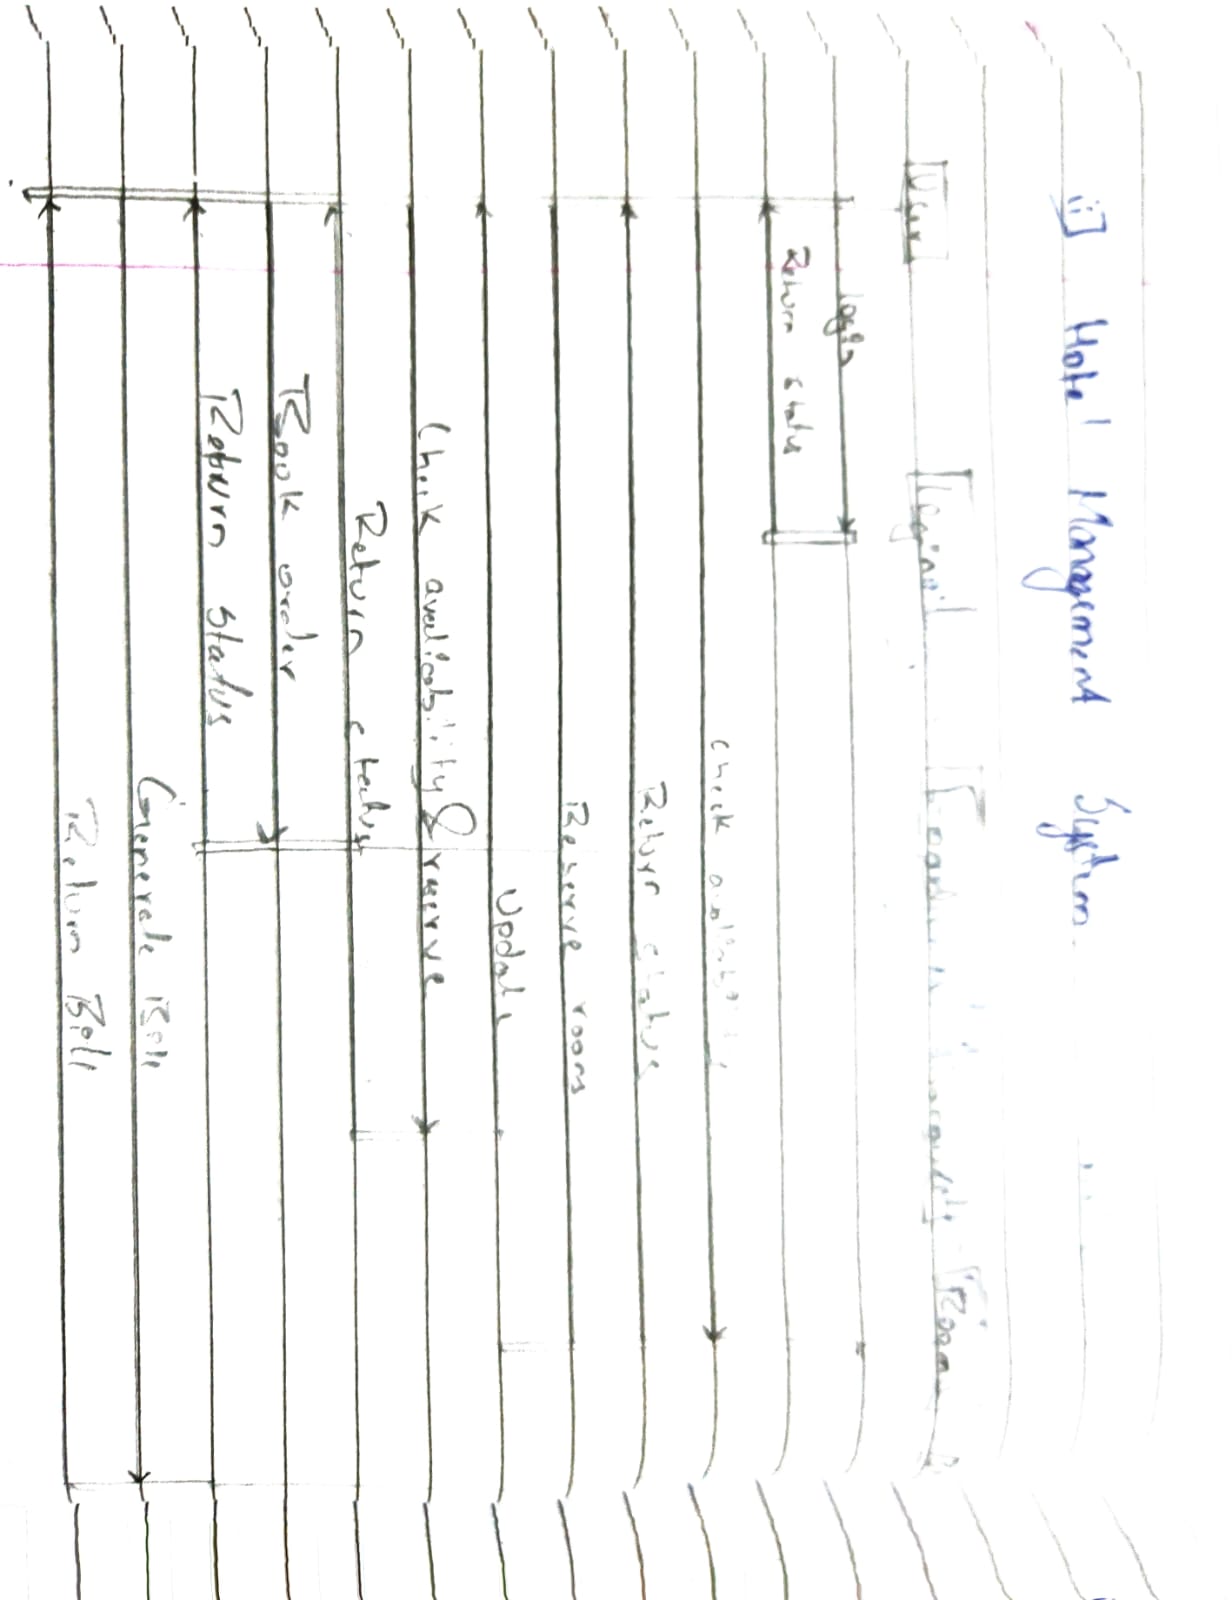 Hotel Management System
User
Login
Room
login
Return status
Check
Return status
Reserve room
Update
Check availability & reserve
Return status
Book order
Return status
Generate Bill
Return Bill